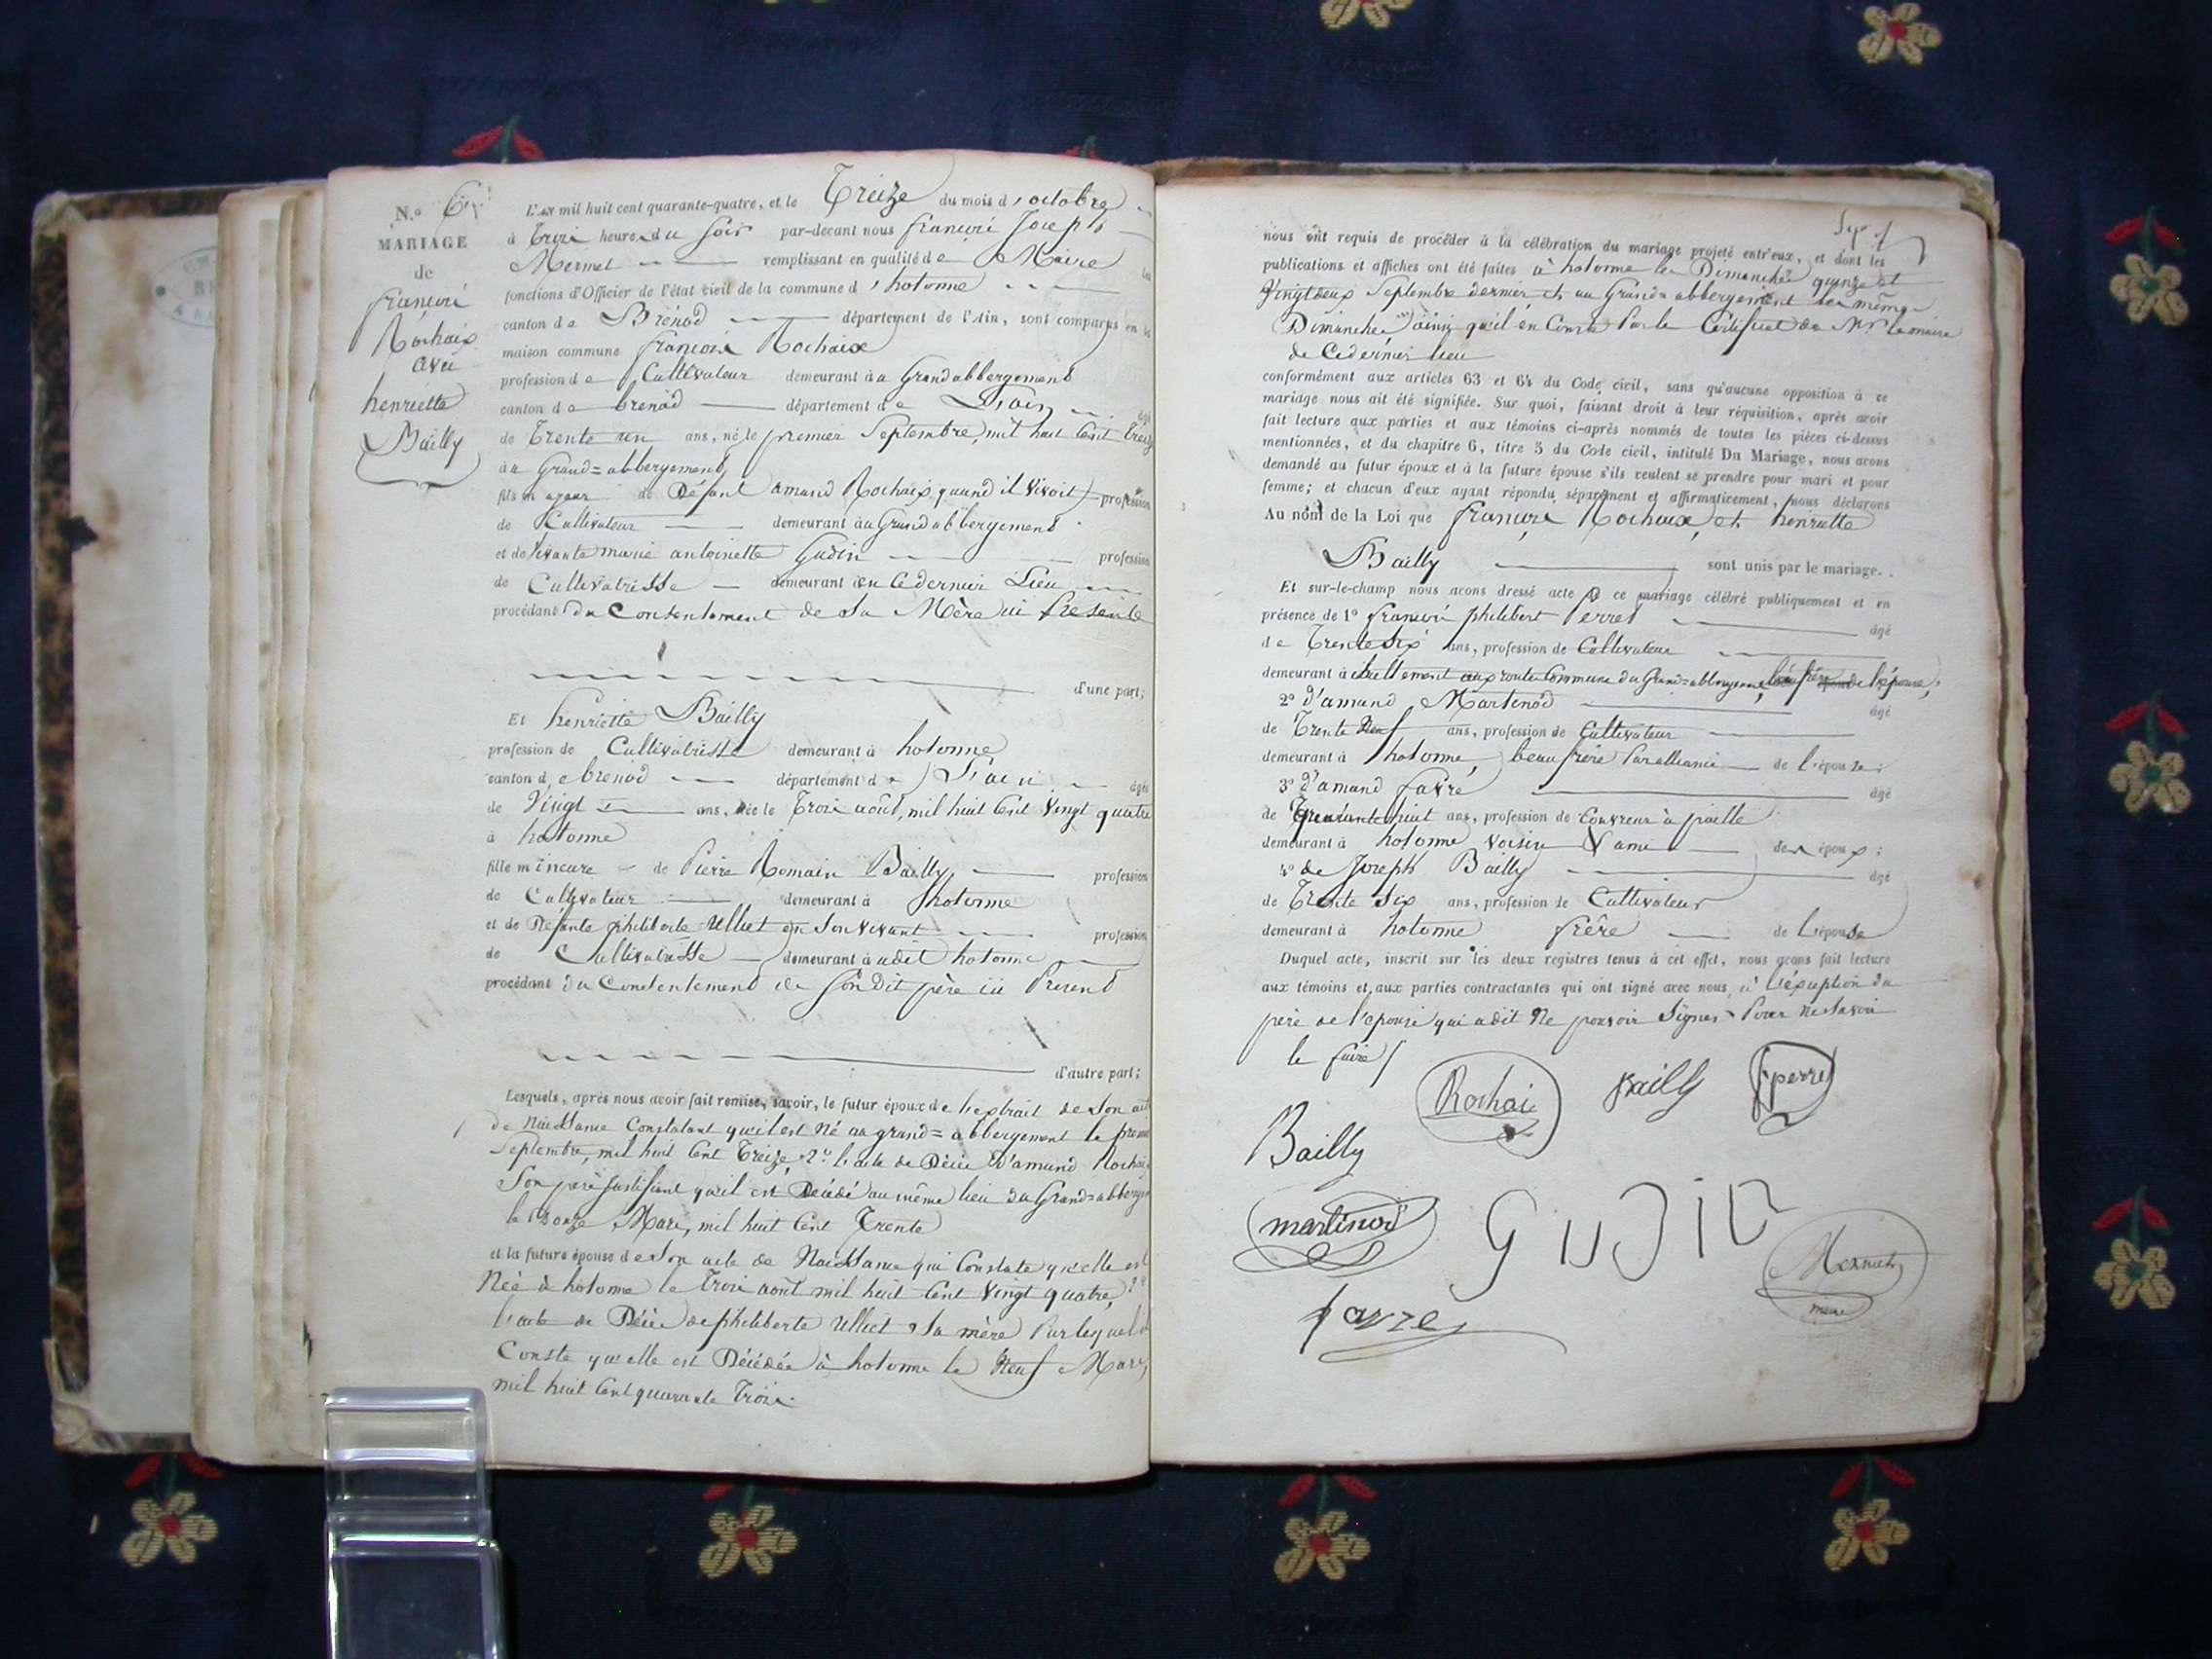 N.o 6
MARIAGE
de
françois
Rochaix
avec
henriette
Bailly
L'AN mil huit cent quarante-quatre, et le Treize du mois d'octobre
à Trois heures du soir par-devant nous françois Joseph
Mermet remplissant en qualité de Maire les
fonctions d'Officier de l'état civil de la commune d'hotonne
canton de Brénod département de l'Ain, sont comparus en la
maison commune françois Rochaix
profession de Cultivateur demeurant au Grand abbergement
canton de brenod département de L'ain âgé
de Trente un ans, né le premier Septembre, mil huit Cent Treize
au Grand=abbergement
fils majeur de Défunt amand Rochaix, quand il vivoit profession
de Cultivateur demeurant au Grand abbergement
et de vivante marie antoinette Gudin profession
de Cultivatrisse demeurant en Ce dernier Lieu
procédant du Consentement de Sa Mère ici presente
d'une part;
Et henriette Bailly
profession de Cultivatrisse demeurant à hotonne
canton de brenod département de L'ain âgée
de Vingt ans, née le Trois août, mil huit Cent Vingt quatre
à hotonne
fille mineure de Pierre Romain Bailly profession
de Cultivateur demeurant à hotonne
et de Défunte philiberte Ulliet en Son vivant profession
de Cultivatrisse demeurant audit hotonne
procédant du Consentement de Son Dit père ici Present
d'autre part;
Lesquels, après nous avoir fait remise, savoir, le futur époux de l'extrait de Son acte
de Naissance Constatant qu'il est Né au grand=abbergement le premier
Septembre, mil huit Cent Treize, 2° l'acte de Décès D'amand Rochaix
Son père justifiant qu'il est Décédé au même lieu du Grand=abbergement
le onze Mars, mil huit Cent Trente
et la future épouse de Son acte de Naissance qui Constate qu'elle est
Née à hotonne le Trois août mil huit Cent Vingt quatre, 2°
l'acte de Décès de philiberte Ulliet Sa mère Par lequel il
Conste qu'elle est Décédée à hotonne le Neuf Mars,
mil huit Cent quarante Trois.
nous ont requis de procéder à la célébration du mariage projeté entr'eux, et dont les
publications et affiches ont été faites à hotonne les Dimanches quinze et
Vingt deux Septembre dernier, et au Grand=abbergement les mêmes
Dimanches ainsi qu'il en Conste Par le Certificat de Mr le maire
de Ce dernier lieu
conformément aux articles 63 et 64 du Code civil, sans qu'aucune opposition à ce
mariage nous ait été signifiée. Sur quoi, faisant droit à leur réquisition, après avoir
fait lecture aux parties et aux témoins ci-après nommés de toutes les pièces ci-dessus
mentionnées, et du chapitre 6, titre 5 du Code civil, intitulé Du Mariage, nous avons
demandé au futur époux et à la future épouse s'ils veulent se prendre pour mari et pour
femme; et chacun d'eux ayant répondu séparément et affirmativement, nous déclarons
Au nom de la Loi que françois Rochaix, et henriette
Bailly sont unis par le mariage.
Et sur-le-champ nous avons dressé acte de ce mariage célébré publiquement et en
présence de 1° françois philibert Perret âgé
de Trente Six ans, profession de Cultivateur
demeurant à Commune du Grand=abbergement, de l'épouse;
2° d'amand Martinod âgé
de Trente Neuf ans, profession de Cultivateur
demeurant à hotonne, beau frère Par alliance de l'épouse;
3° d'amand favre âgé
de Quarante huit ans, profession de Couvreur à paille
demeurant à hotonne Voisin & ami des époux;
4° de Joseph Bailly âgé
de Trente Six ans, profession de Cultivateur
demeurant à hotonne frère de L'épouse
Duquel acte, inscrit sur les deux registres tenus à cet effet, nous avons fait lecture
aux témoins et aux parties contractantes qui ont signé avec nous, à l'éxception du
père de l'epouse qui a dit Ne pouvoir Signer Pour ne Savoir
le faire
Rochai Bailly f perret
Bailly
martinod GUDIN Mermet
maire
favre